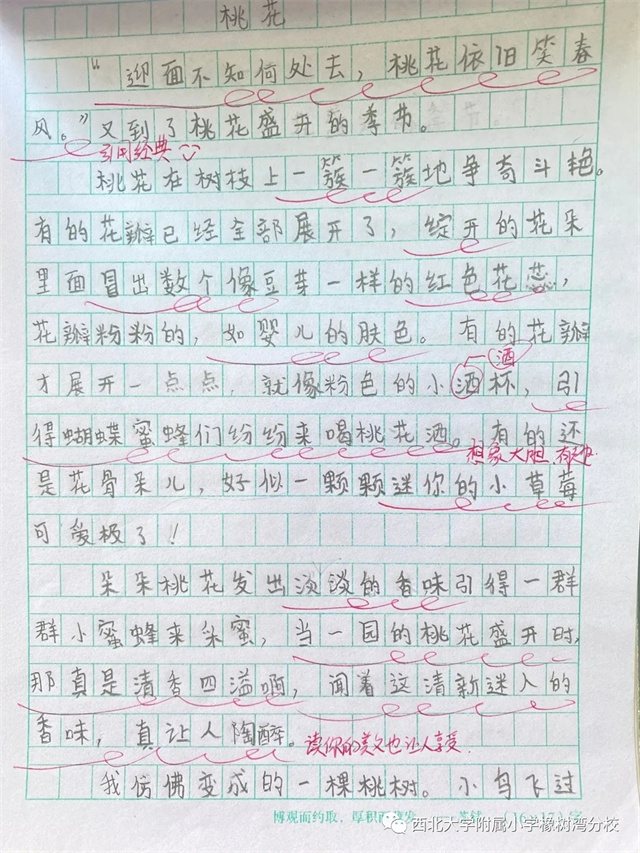 桃花
“迎面不知何处去，桃花依旧笑春
风。”又到了桃花盛开的季节。
引用经典
桃花在树枝上一簇一簇地争奇斗艳。
有的花瓣已经全部展开了，绽开的花朵
里面冒出数个像豆芽一样的红色花蕊，
花瓣粉粉的，如婴儿的肤色。有的花瓣
酒
才展开一点点，就像粉色的小洒杯，引
得蝴蝶蜜蜂们纷纷来喝桃花酒。有的还
想象大胆 有趣
是花骨朵儿，好似一颗颗迷你的小草莓
可爱极了！
朵朵桃花发出淡淡的香味引得一群
群小蜜蜂来采蜜，当一园的桃花盛开时，
那真是清香四溢啊，闻着这清新迷人的
香味，真让人陶醉。
读你的美文也让人享受.
我仿佛变成的一棵桃树。小鸟飞过
博观而约取，厚积而薄发
西北大学附属小学橡树湾分校